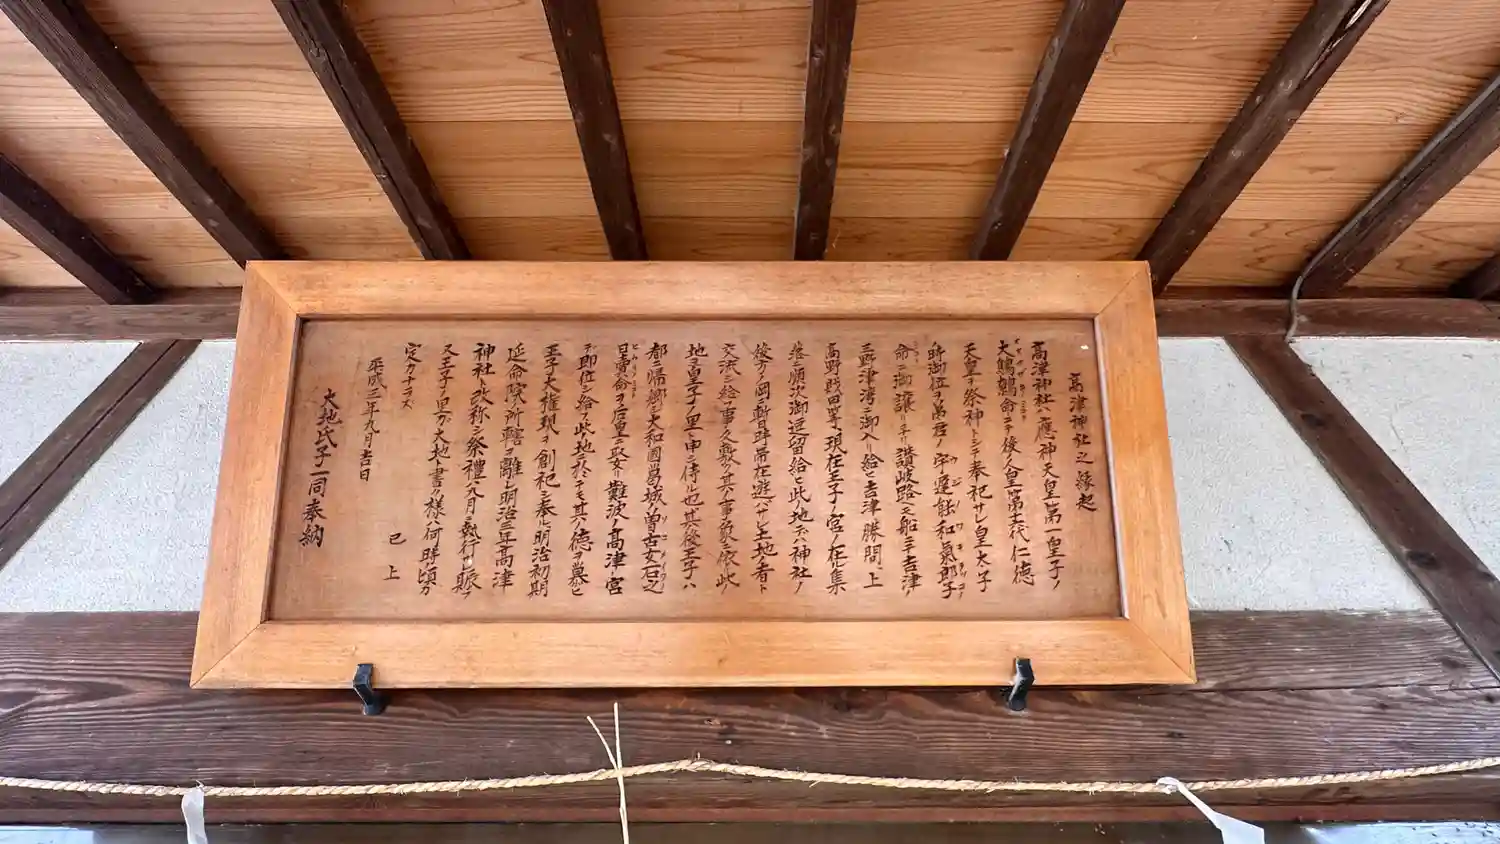 高津神社之縁起
高津神社ハ應神天皇第一皇子ノ
大鷦鷯命ニテ後人皇第十六代仁徳
天皇ヲ祭神トシテ奉祀サレ皇太子
時御位ヲ弟君ノ宇遅能和氣郎子
命ニ御譲ラレ讃岐路ヘ船ニテ吉津ノ
三野津湾ニ御入リ給ヒ吉津勝間ノ上
高野戝田等ノ現在王子ノ宮ノ在ル集
落ヲ順次御逗留給ヒ此ノ地ズハ神社ノ
後方ノ岡ニ暫時帯在遊バサレ土地ノ者ト
交流シ給ヒ事久敷ク其ノ事ニ依ッ此ノ
地ヲ皇子ノ里ト申シ傳ル也其後王子ハ
都ニ帰郷シ大和國葛城ノ曽古女石之
日賣命ヲ后皇ニ娶リ難波ノ高津ノ宮
デ即位シ給フ此ノ地ニ於テモ其ノ徳ヲ慕ヒ
王子大権現ヲ創祀シ奉ル明治初期
延命院ノ所轄ヲ離レ明治三年高津
神社ト改称シ祭禮ハ九月ニ執行サレ賑フ
又王子ノ里ガ大地ト書ク様ハ何時ノ頃カ
定カナラズ
已上
平成三年九月吉日
大地氏子一同奉納